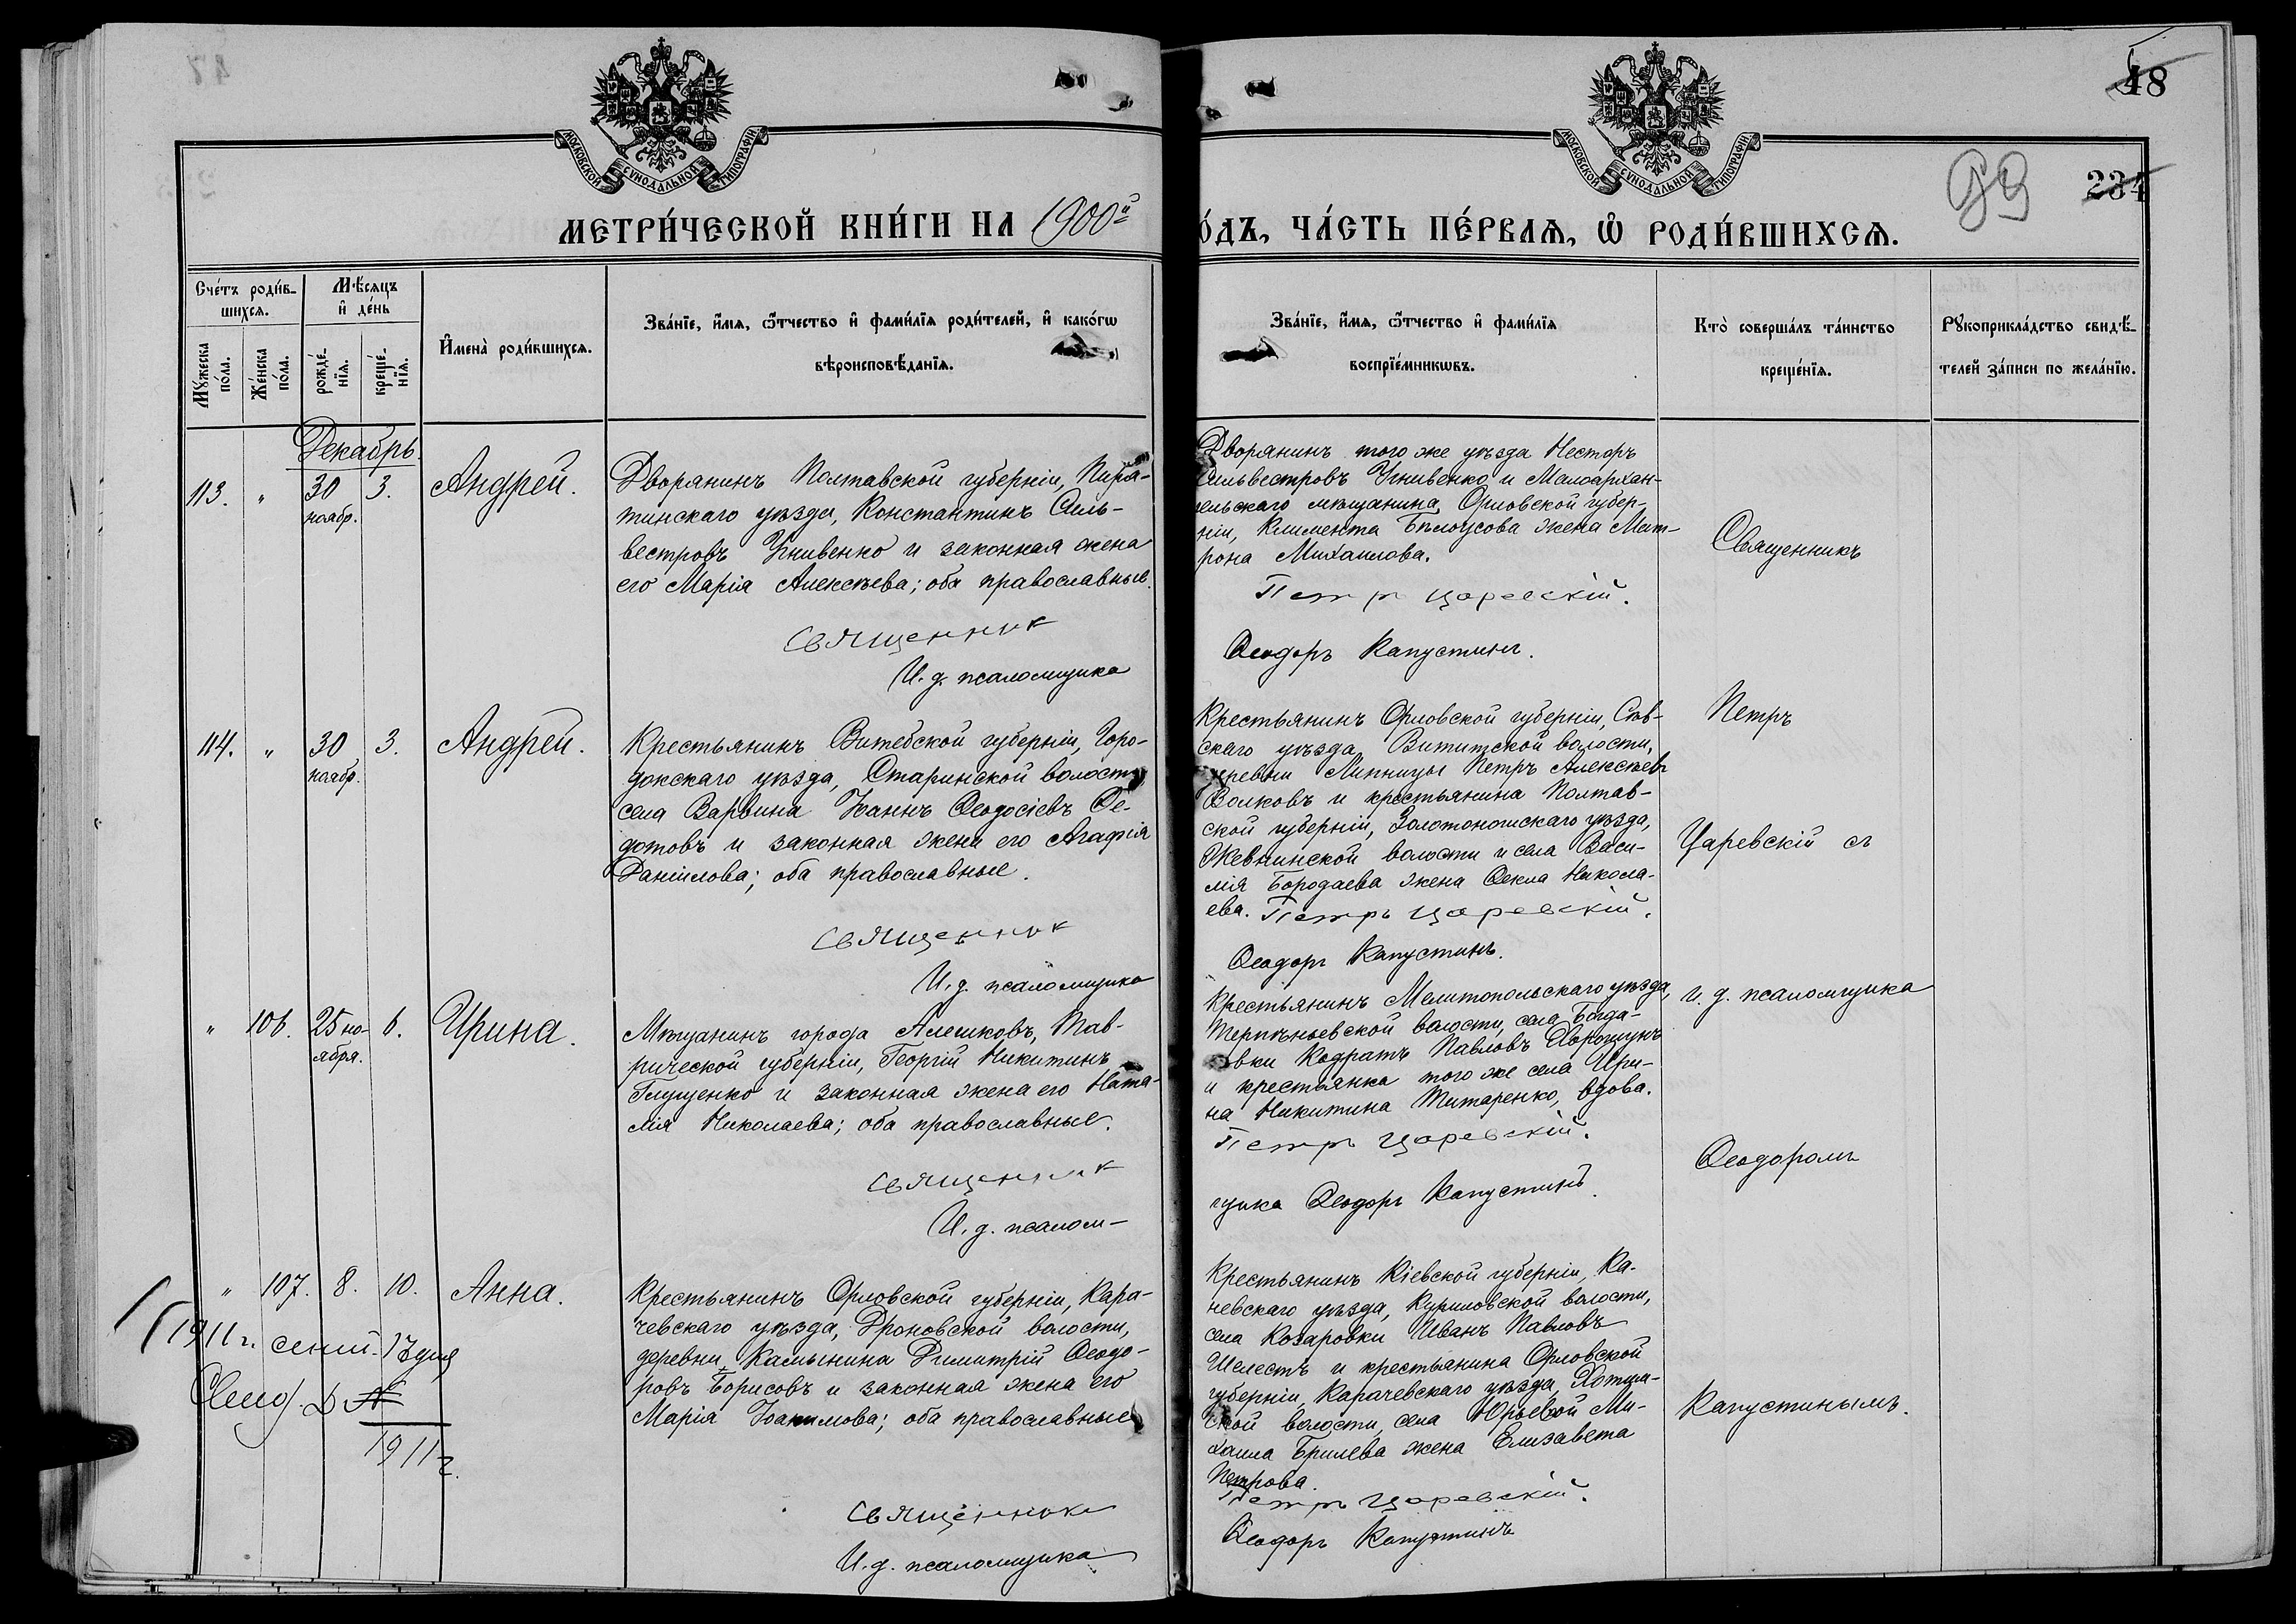 48
234
89
МОСКОВСКОЙ СѴНОДАЛЬНОЙ ТИПОГРАФІИ
МОСКОВСКОЙ СѴНОДАЛЬНОЙ ТИПОГРАФІИ
МЕТРИ́ЧЕСКОЙ КНИ́ГИ НА 1900й
О́ДЪ, ЧА́СТЬ ПЕ́РВАѦ, Ѡ҆ РОДИ́ВШИХСѦ.
Сче́тъ роди́в-
шихсѧ.
Мꙋ́жеска
по́ла.
Же́нска
по́ла.
Мѣ́сѧцъ
и҆ де́нь
рожде́-
нїѧ.
креще́-
нїѧ.
И҆мена̀ роди́вшихсѧ.
Зва́нїе, и҆́мѧ, ѻ҆́тчество и҆ фами́лїѧ роди́телей, и҆ како́гѡ
вѣроисповѣ́данїѧ.
Зва́нїе, и҆́мѧ, ѻ҆́тчество и҆ фами́лїѧ
воспрїе́мникѡвъ.
Кто̀ соверша́лъ та́инство
креще́нїѧ.
Рꙋкоприкла́дство свидѣ́-
телей за́писи по жела́нїю.
Декабрь.
113. " 30 ноябр. 3. Андрей.
Дворянинъ Полтавской губерніи, Пиря-
тинскаго уѣзда, Константинъ Силь-
вестровъ Гнивенко и законная жена
его Марія Алексѣева; оба православные.
священник
И. д. псаломщика
Дворянинъ того же уѣзда Несторъ
Сильвестровъ Гнивенко и Малоархан-
гельскаго мѣщанина, Орловской губер-
ніи, Климента Бѣлоусова жена Мат-
рона Михаилова.
Петръ Царевскій.
Ѳеодоръ Капустинъ.
114. " 30 ноябр. 3. Андрей.
Крестьянинъ Витебской губерніи, Горо-
докскаго уѣзда, Старинской волости
села Варвина Іоаннъ Ѳеодосіевъ Ѳе-
дотовъ и законная жена его Агафія
Даніилова; оба православные.
священник
И. д. псаломщика
Крестьянинъ Орловской губерніи, Сѣв-
скаго уѣзда, Вититской волости,
деревни Липницы Петръ Алексѣевъ
Волковъ и крестьянина Полтав-
ской губерніи, Золотоношскаго уѣзда,
волости и села Васи-
лія Бородаева жена Ѳекла Никола-
ева. Петръ Царевскій.
Ѳеодоръ Капустинъ.
" 106. 25 но-
ября. 6. Ирина.
Мѣщанинъ города Алешковъ, Тав-
рической губерніи, Георгій Никитинъ
Глущенко и законная жена его Ната-
лія Николаева; оба православные.
священник
И. д. псалом-
Крестьянинъ Мелитопольскаго уѣзда,
Терпѣньевской волости, села Богда-
новки Кодратъ Павловъ
и крестьянка того же села Ири-
на Никитина Титаренко, вдова.
Петръ Царевскій.
щика Ѳеодоръ Капустинъ.
" 107. 8. 10. Анна.
Крестьянинъ Орловской губерніи, Кара-
чевскаго уѣзда, Дроновской волости,
деревни Камынина Димитрій Ѳеодо-
ровъ Борисовъ и законная жена его
Марія Іоакимова; оба православные
священник
И. д. псаломщика
Крестьянинъ Кіевской губерніи, Ка-
невскаго уѣзда, Куриловской волости,
села Козаровки Иванъ Павловъ
Шелестъ и крестьянина Орловской
губерніи, Карачевскаго уѣзда,
волости, села Юрьевой Ми-
хаила Брилева жена Елизавета
Петрова.
Петръ Царевскій.
Ѳеодоръ Капустинъ
1911 г. сент. 13 дня
1911 г.
Священникъ
Петръ
Царевскій съ
и. д. псаломщика
Ѳеодоромъ
Капустинымъ.